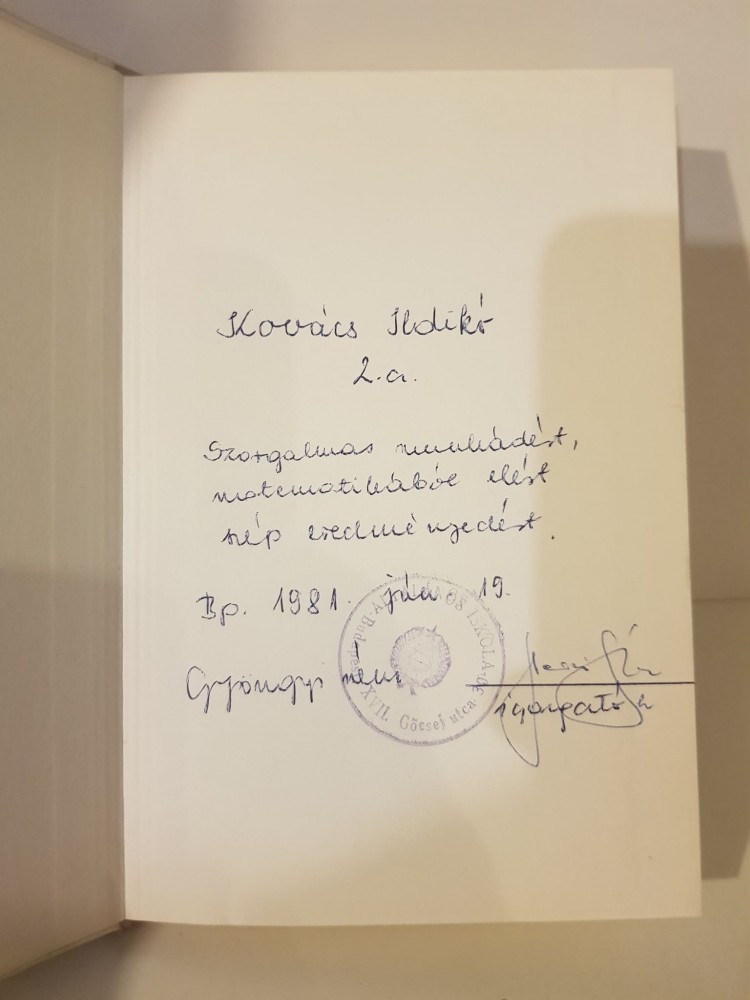 Kovács Ildikó
2.a.
Szorgalmas munkádért,
matematikából elért
szép eredményedért.
Bp. 1981. jún. 19.
Gyöngyi néni
igazgató h
ÁLTALÁNOS ISKOLA
Budapest XVII. Göcsej utca